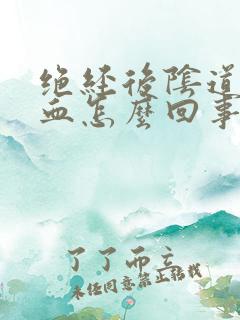 绝经后陰道
血怎麼回事
了了而立
未经同意禁止转载